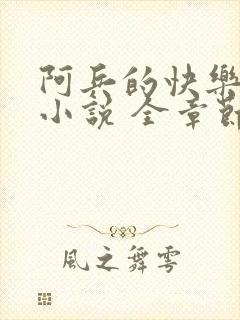 阿兵的快樂
小說 全章節
風之舞雩